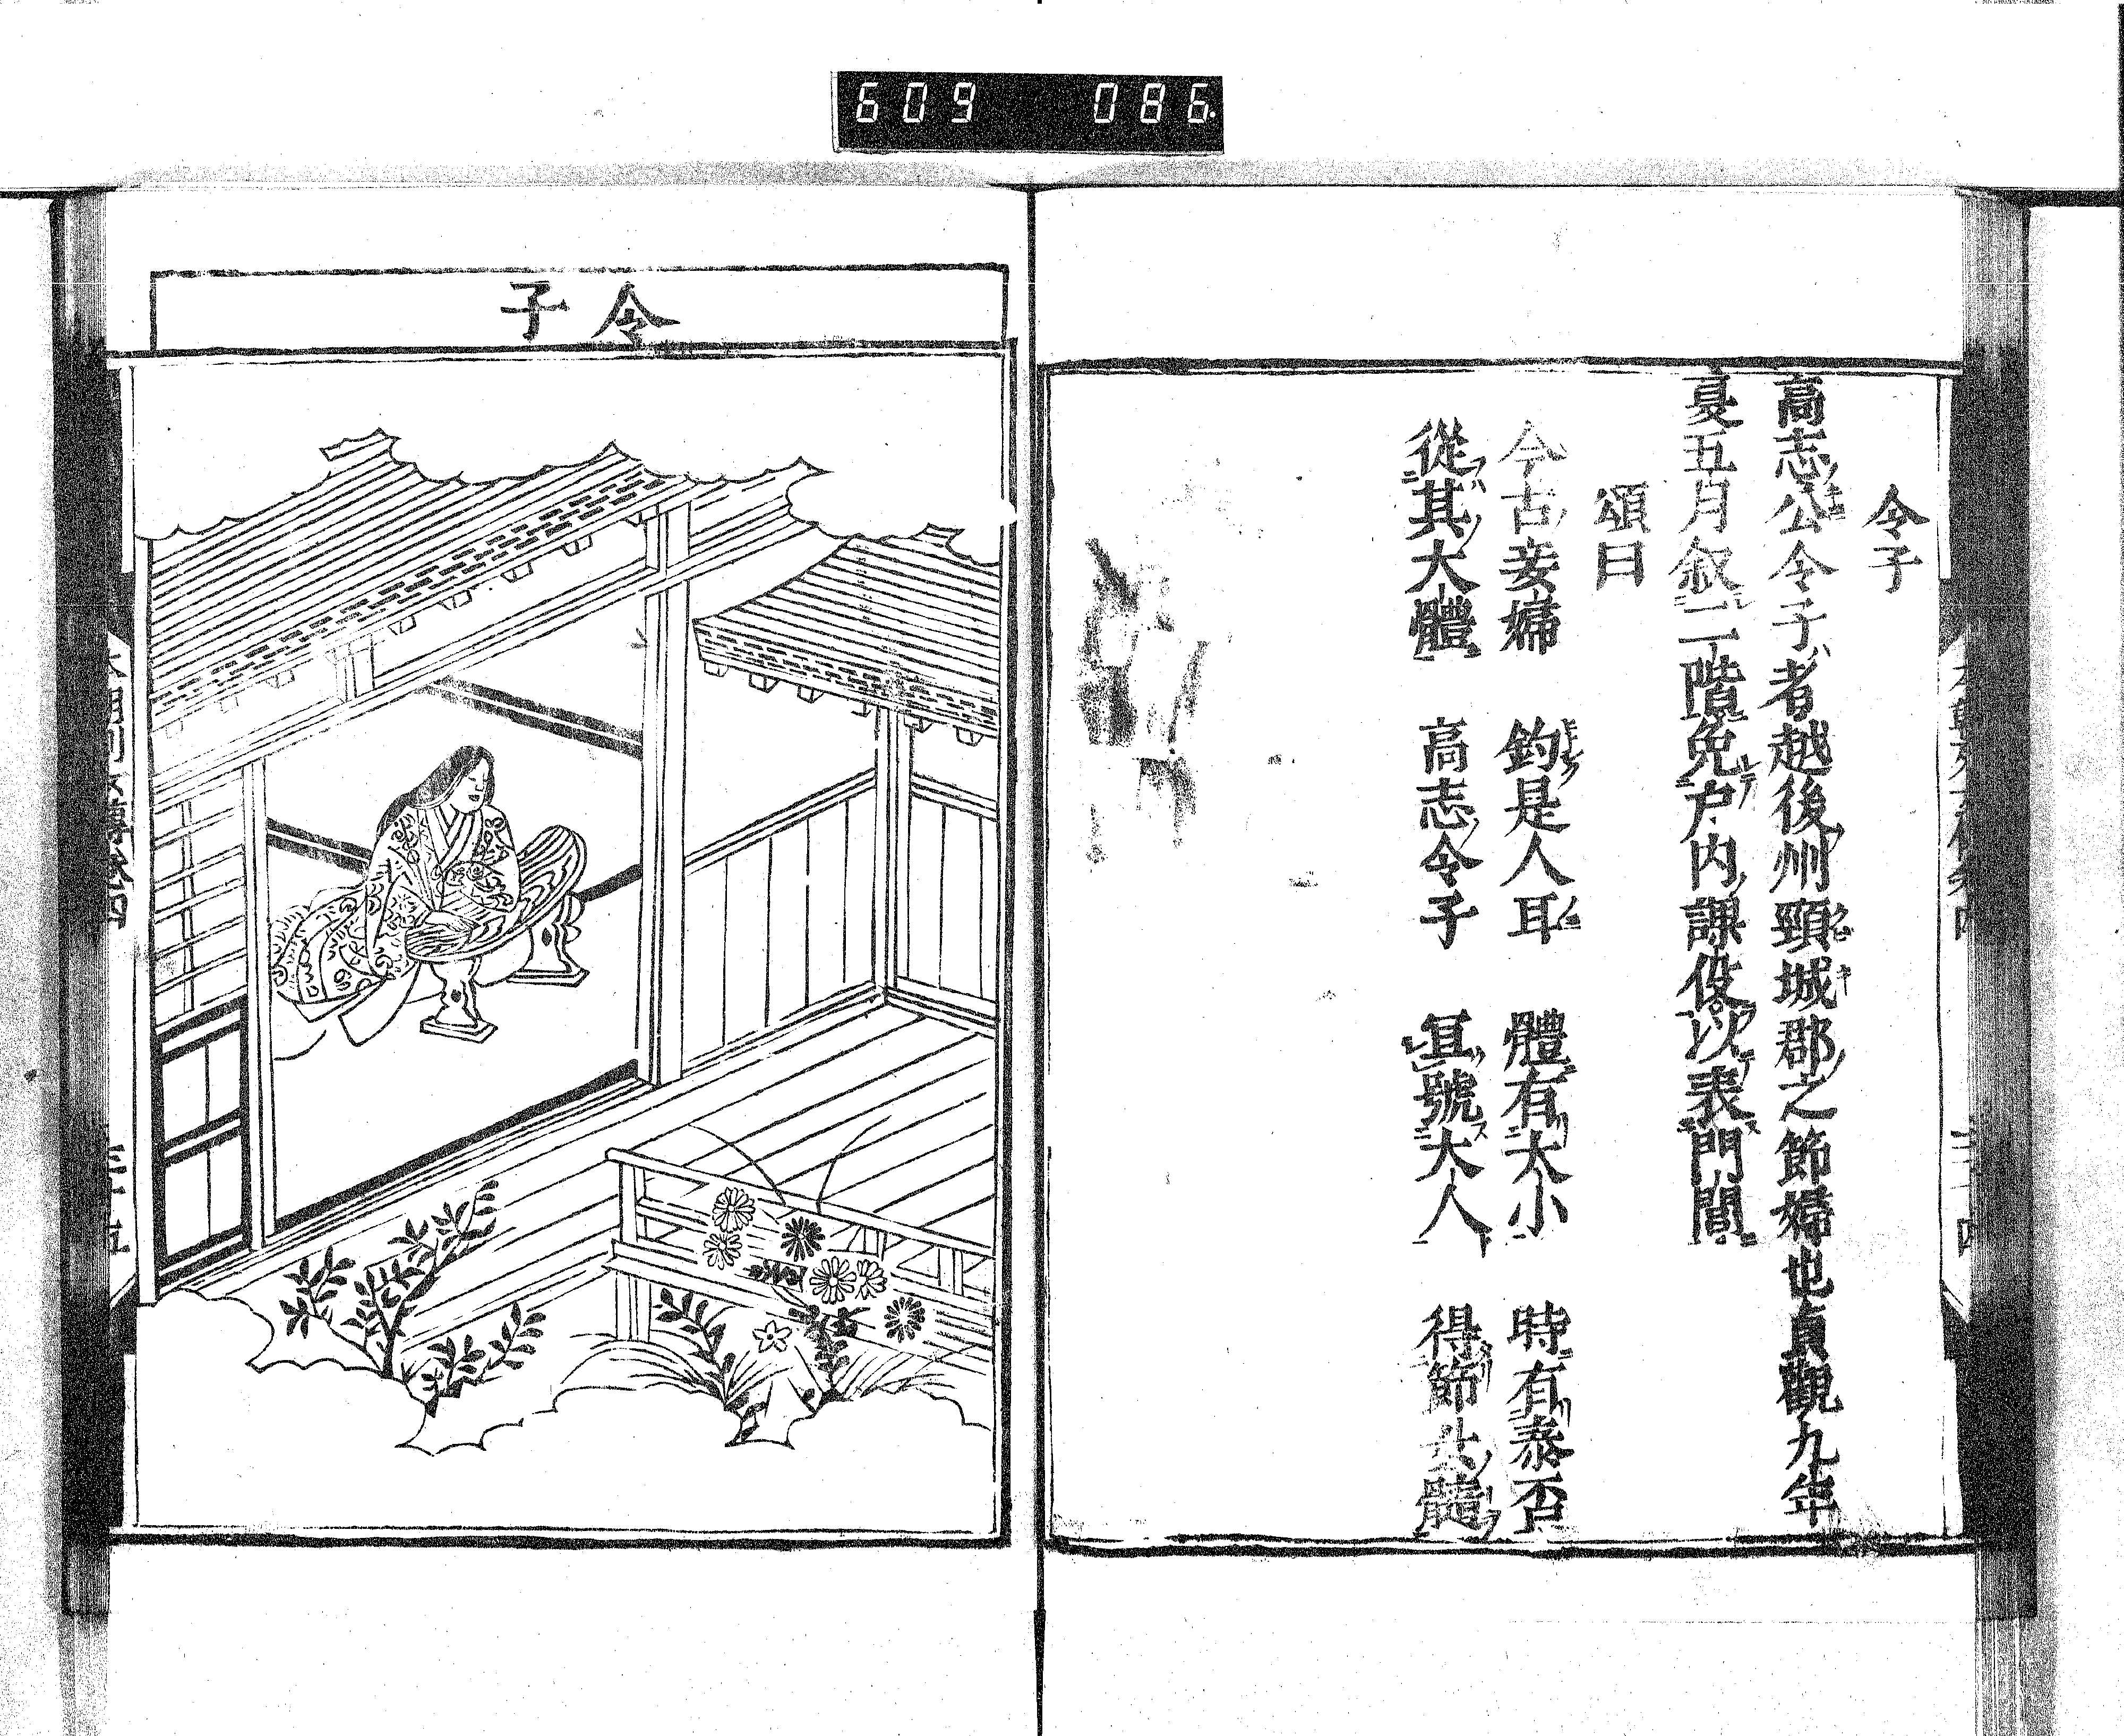 609 086
令子
高志公令子者越後州頸城郡之節婦也貞觀九年
夏五月叙二階免户内課役以表門閭
頌曰
今古妾婦 釣是人耳 體有大小 時有泰否
從其大體 高志令子 宜號大人 得節女髓
令子